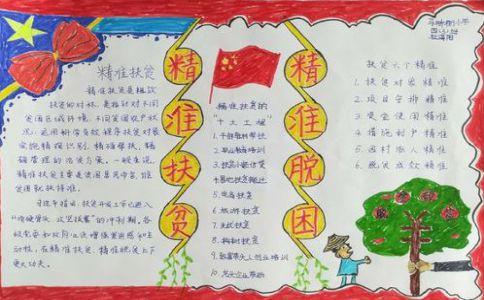 精准扶贫
精准扶贫是粗放
扶贫的对称，是指针对不同
贫困区域环境、不同贫困农户状
况，运用科学有效程序对扶贫
实施精确识别、精确帮扶、精
确管理的治贫方式。一般来说，
精准扶贫主要是就贫困居民而言的，谁
贫困就扶持谁。
精准扶贫
精准扶贫的
"十大工程"
1.干部驻村帮扶
2.职业教育培训
3.扶贫小额信贷
4.易地扶贫搬迁
5.电商扶贫
6.旅游扶贫
7.光伏扶贫
8.构树扶贫
9.致富带头人创业培训
10.龙头企业带动
精准脱困
四(3)班
扶贫六个精准
1.扶贫对象精准
2.项目安排精准
3.资金使用精准
4.措施到户精准
5.因村派人精准
6.脱贫成效精准